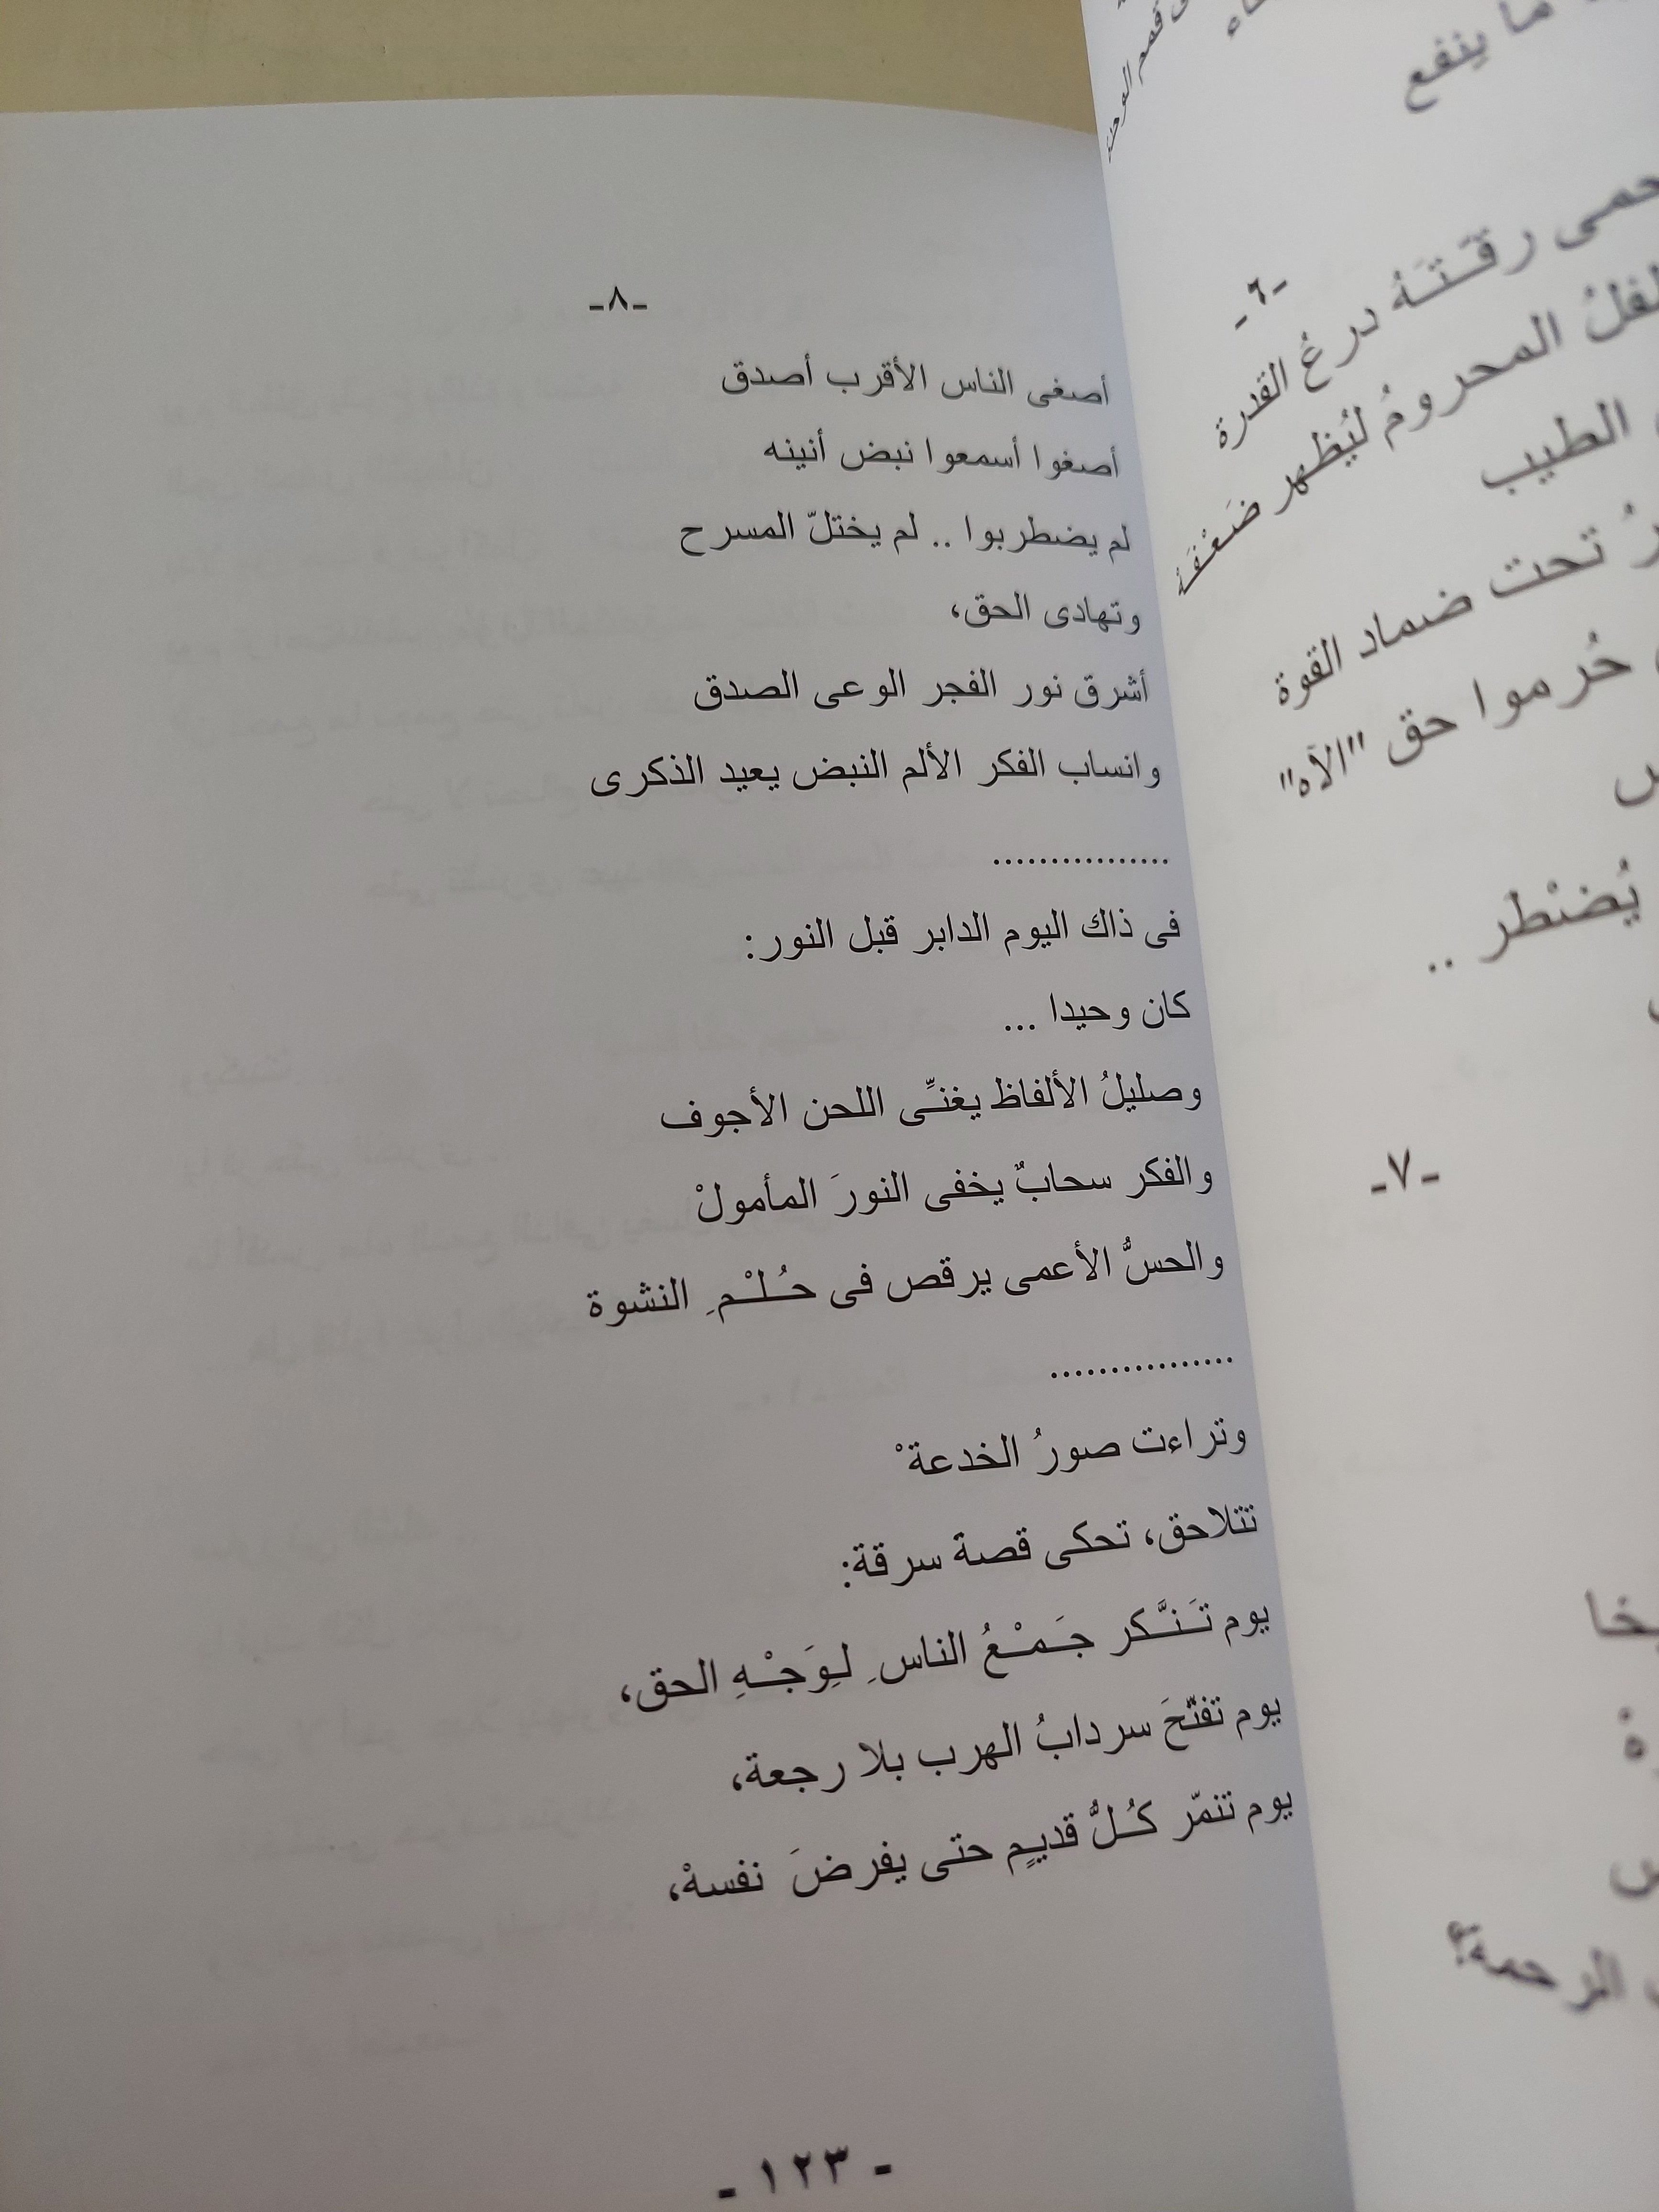 ما ينفع
حمى رقـّـتـَـهُ درعُ القدرة
المحرومُ ليُظهر ضَعْفَهُ
الطيب
تحت ضماد القوة
حُرموا حق "الآه"
يُضْطر ..
-٦-
-٧-
الرحمة؟
-٨-
أصغى الناس الأقرب أصدق
أصغوا أسمعوا نبض أنينه
لم يضطربوا .. لم يختلّ المسرح
وتهادى الحق،
أشرق نور الفجر الوعى الصدق
وانساب الفكر الألم النبض يعيد الذكرى
................
فى ذاك اليوم الدابر قبل النور:
كان وحيدا ...
وصليلُ الألفاظ يغنـِّى اللحن الأجوف
والفكر سحابٌ يخفى النورَ المأمولْ
والحسُّ الأعمى يرقص فى حـُـلـْـم ِ النشوة
................
وتراءت صورُ الخدعة ْ
تتلاحق، تحكى قصة سرقة:
يوم تـَـنـَّـكر جـَـمـْـعُ الناس ِ لـِوَجـْـهِ الحق،
يوم تفتّحَ سردابُ الهرب بلا رجعة،
يوم تنمّر كـُـلُّ قديمٍ حتى يفرضَ نفسهْ،
- ١٢٣ -